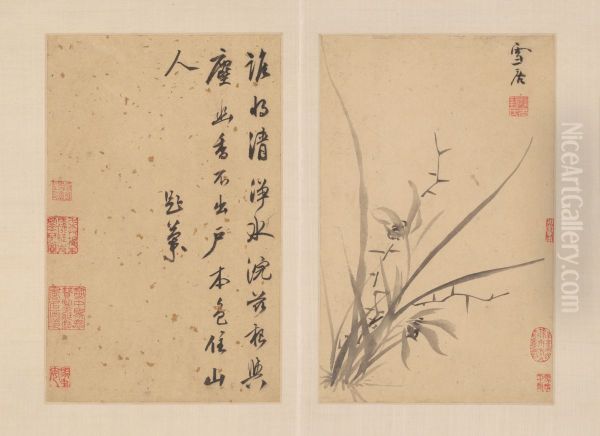 誰將清淨水浣茲根與
塵幽香不出戶本色住山
人
題蘭
雪居
NiceArtGallery.com